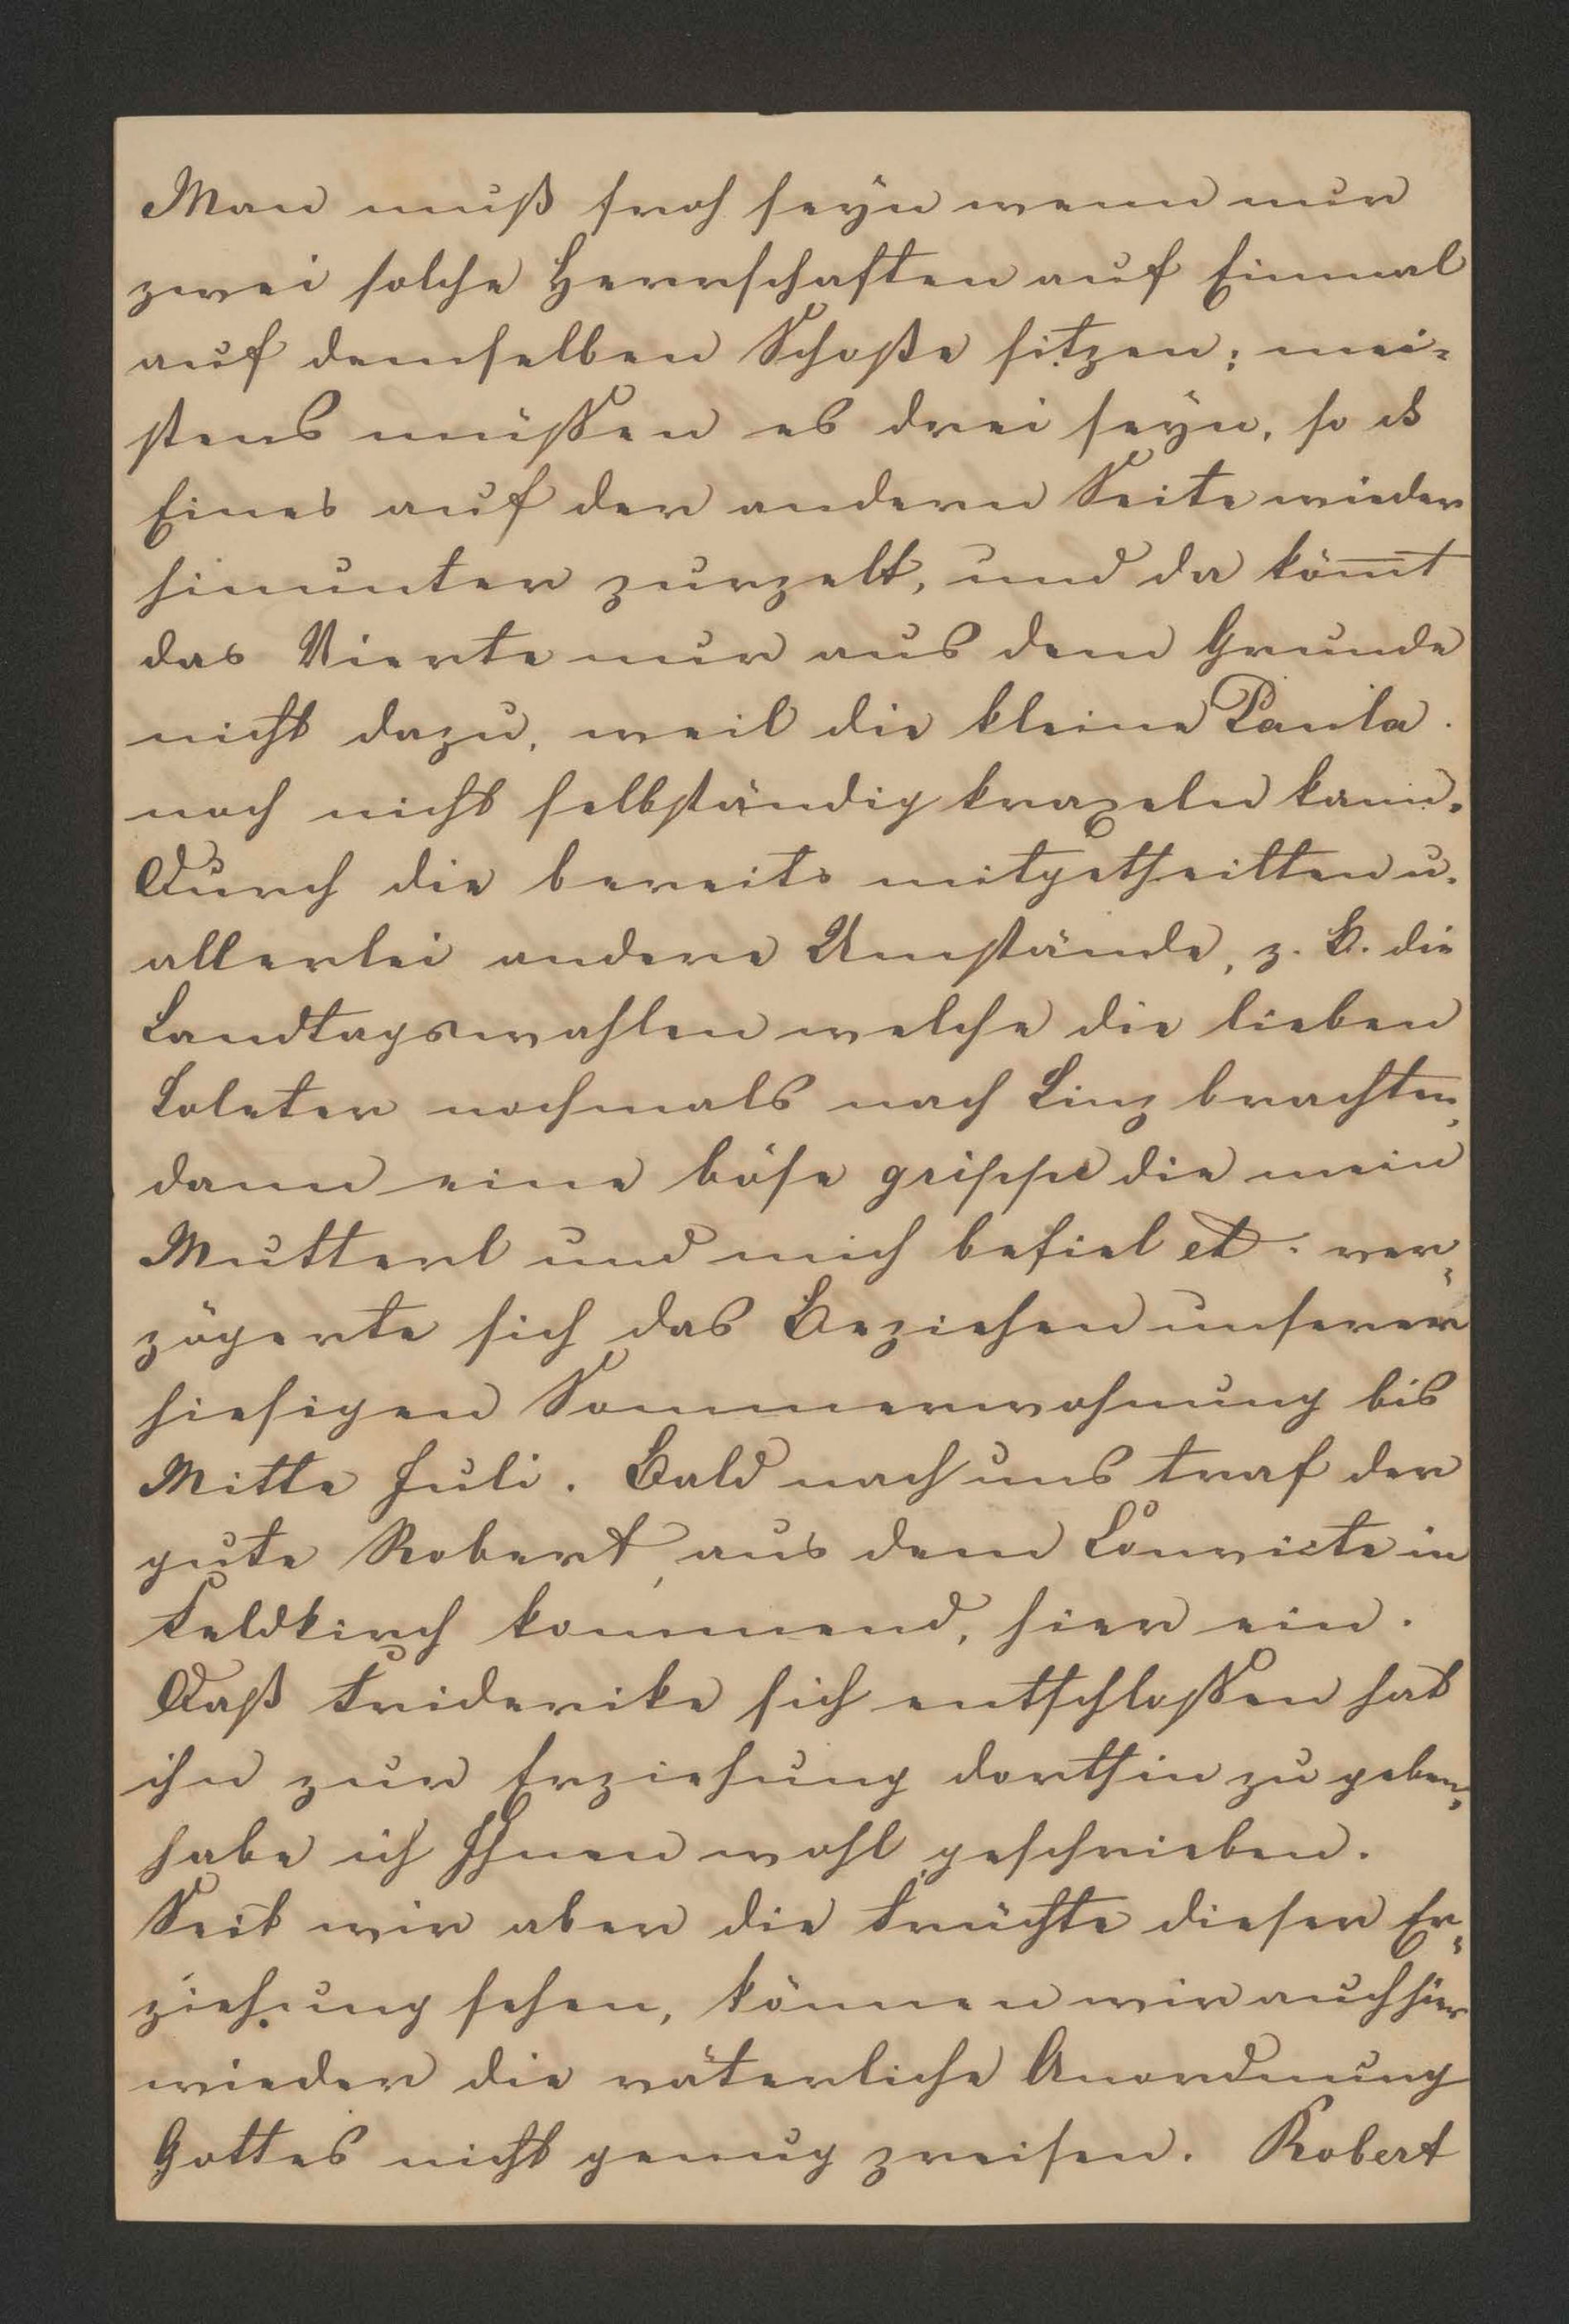 Man muß froh seyn wenn nur
zwei solche Herrschaften auf Einmal
auf demselben Schoße sitzen; mei-
stens müssen es drei seyn, so daß
Eines auf der andern Seite wieder
hinunter purzelt, und da kömmt
das Vierte nur aus dem Grunde
nicht dazu, weil die kleine Paula
noch nicht selbständig kraxeln kann.
Durch die bereits mitgetheilten u.
allerlei andere Umstände, z. B. die
Landtagswahlen welche die lieben
Loleter nochmals nach Linz brachten,
dann eine böse grippe die mein
Mutterl und mich befiel etc. ver-
zögerte sich das Beziehen unserer
hiesigen Sommerwohnung bis
Mitte Juli. Bald nach uns traf der
gute Robert, aus dem Convicte in
Feldkirch kommend, hier ein.
Daß Friderike sich entschlossen hat
ihn zur Erziehung dorthin zu geben,
habe ich Ihnen wohl geschrieben.
Seit wir aber die Früchte dieser Er-
ziehung sehen, können wir auch hier
wieder die väterliche Anordnung
Gottes nicht genug preisen. Robert